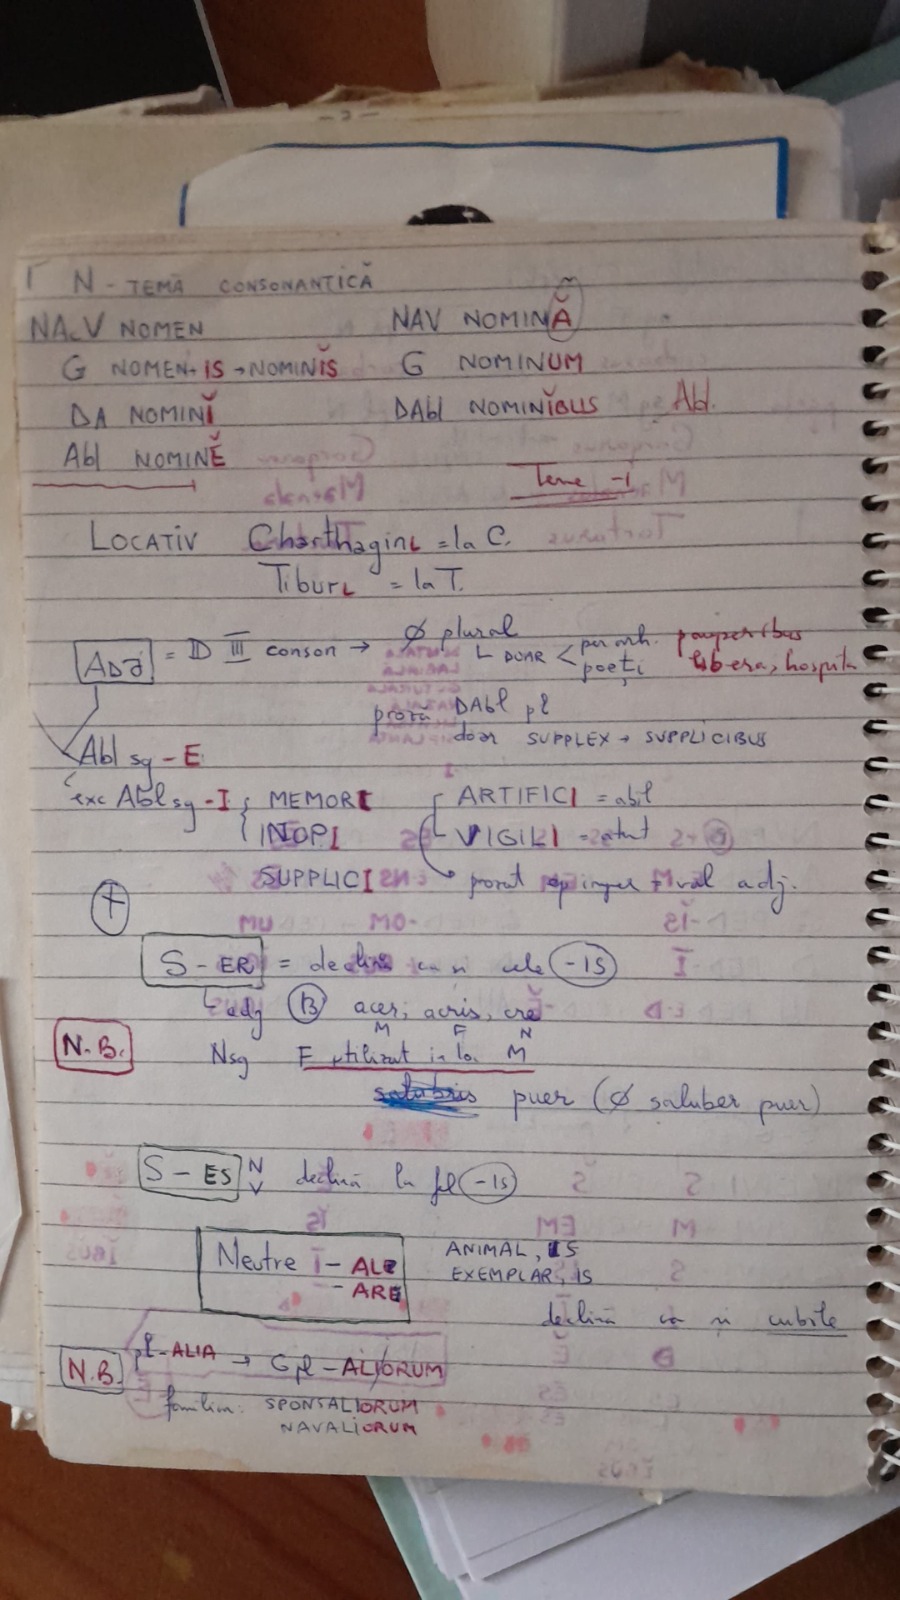 N - TEMĂ CONSONANTICĂ
NA.V NOMEN NAV NOMINĂ
G NOMEN + IS → NOMINĬS G NOMINUM
DA NOMINĪ DAbl NOMINĬBUS Abl.
Abl NOMINĔ
Teme -i
LOCATIV Charthagini = la C.
Tiburi = la T.
ADJ = D III conson → Ø plural
DOAR < per arh. pauperibus
poeți libera, hospita
proză DAbl pl
doar SUPPLEX → SUPPLICIBUS
Abl sg - E
exc Abl sg - I { MEMORI ARTIFICI = abil
INOPI VIGILI = atent
SUPPLICI pronat ep inger + val adj.
S - ER = declină ca și cele -IS
adj B acer, acris, cre
M F N
N.B. Nsg F utilizat în loc M
salubris puer (Ø saluber puer)
S - ES N V declină la fel -IS
Neutre I - ALE ANIMAL, IS
- ARE EXEMPLAR, IS
declină ca și cubile
N.B. pl - ALIA → G pl - ALIORUM
familia: SPONSALIORUM
NAVALIORUM